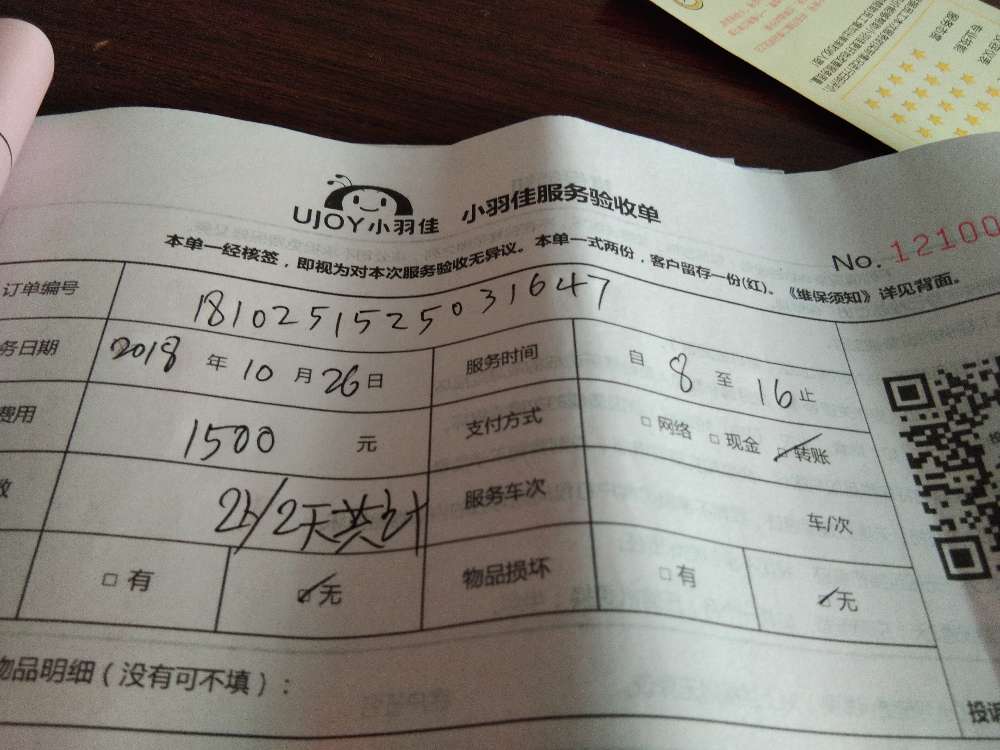 UJOY小羽佳 小羽佳服务验收单
No. 12100
本单一经核签，即视为对本次服务验收无异议。本单一式两份，客户留存一份(红)。《维保须知》详见背面。
订单编号 181025152503 1647
务日期 2018 年 10 月 26 日 服务时间 自 8 至 16 止
费用 1500 元 支付方式 □ 网络 □ 现金 ☑ 转账
数 2人/2天共计 服务车次 车/次
□ 有 ☑ 无 物品损坏 □ 有 ☑ 无
物品明细（没有可不填）：
投诉
服务态度
专业技能